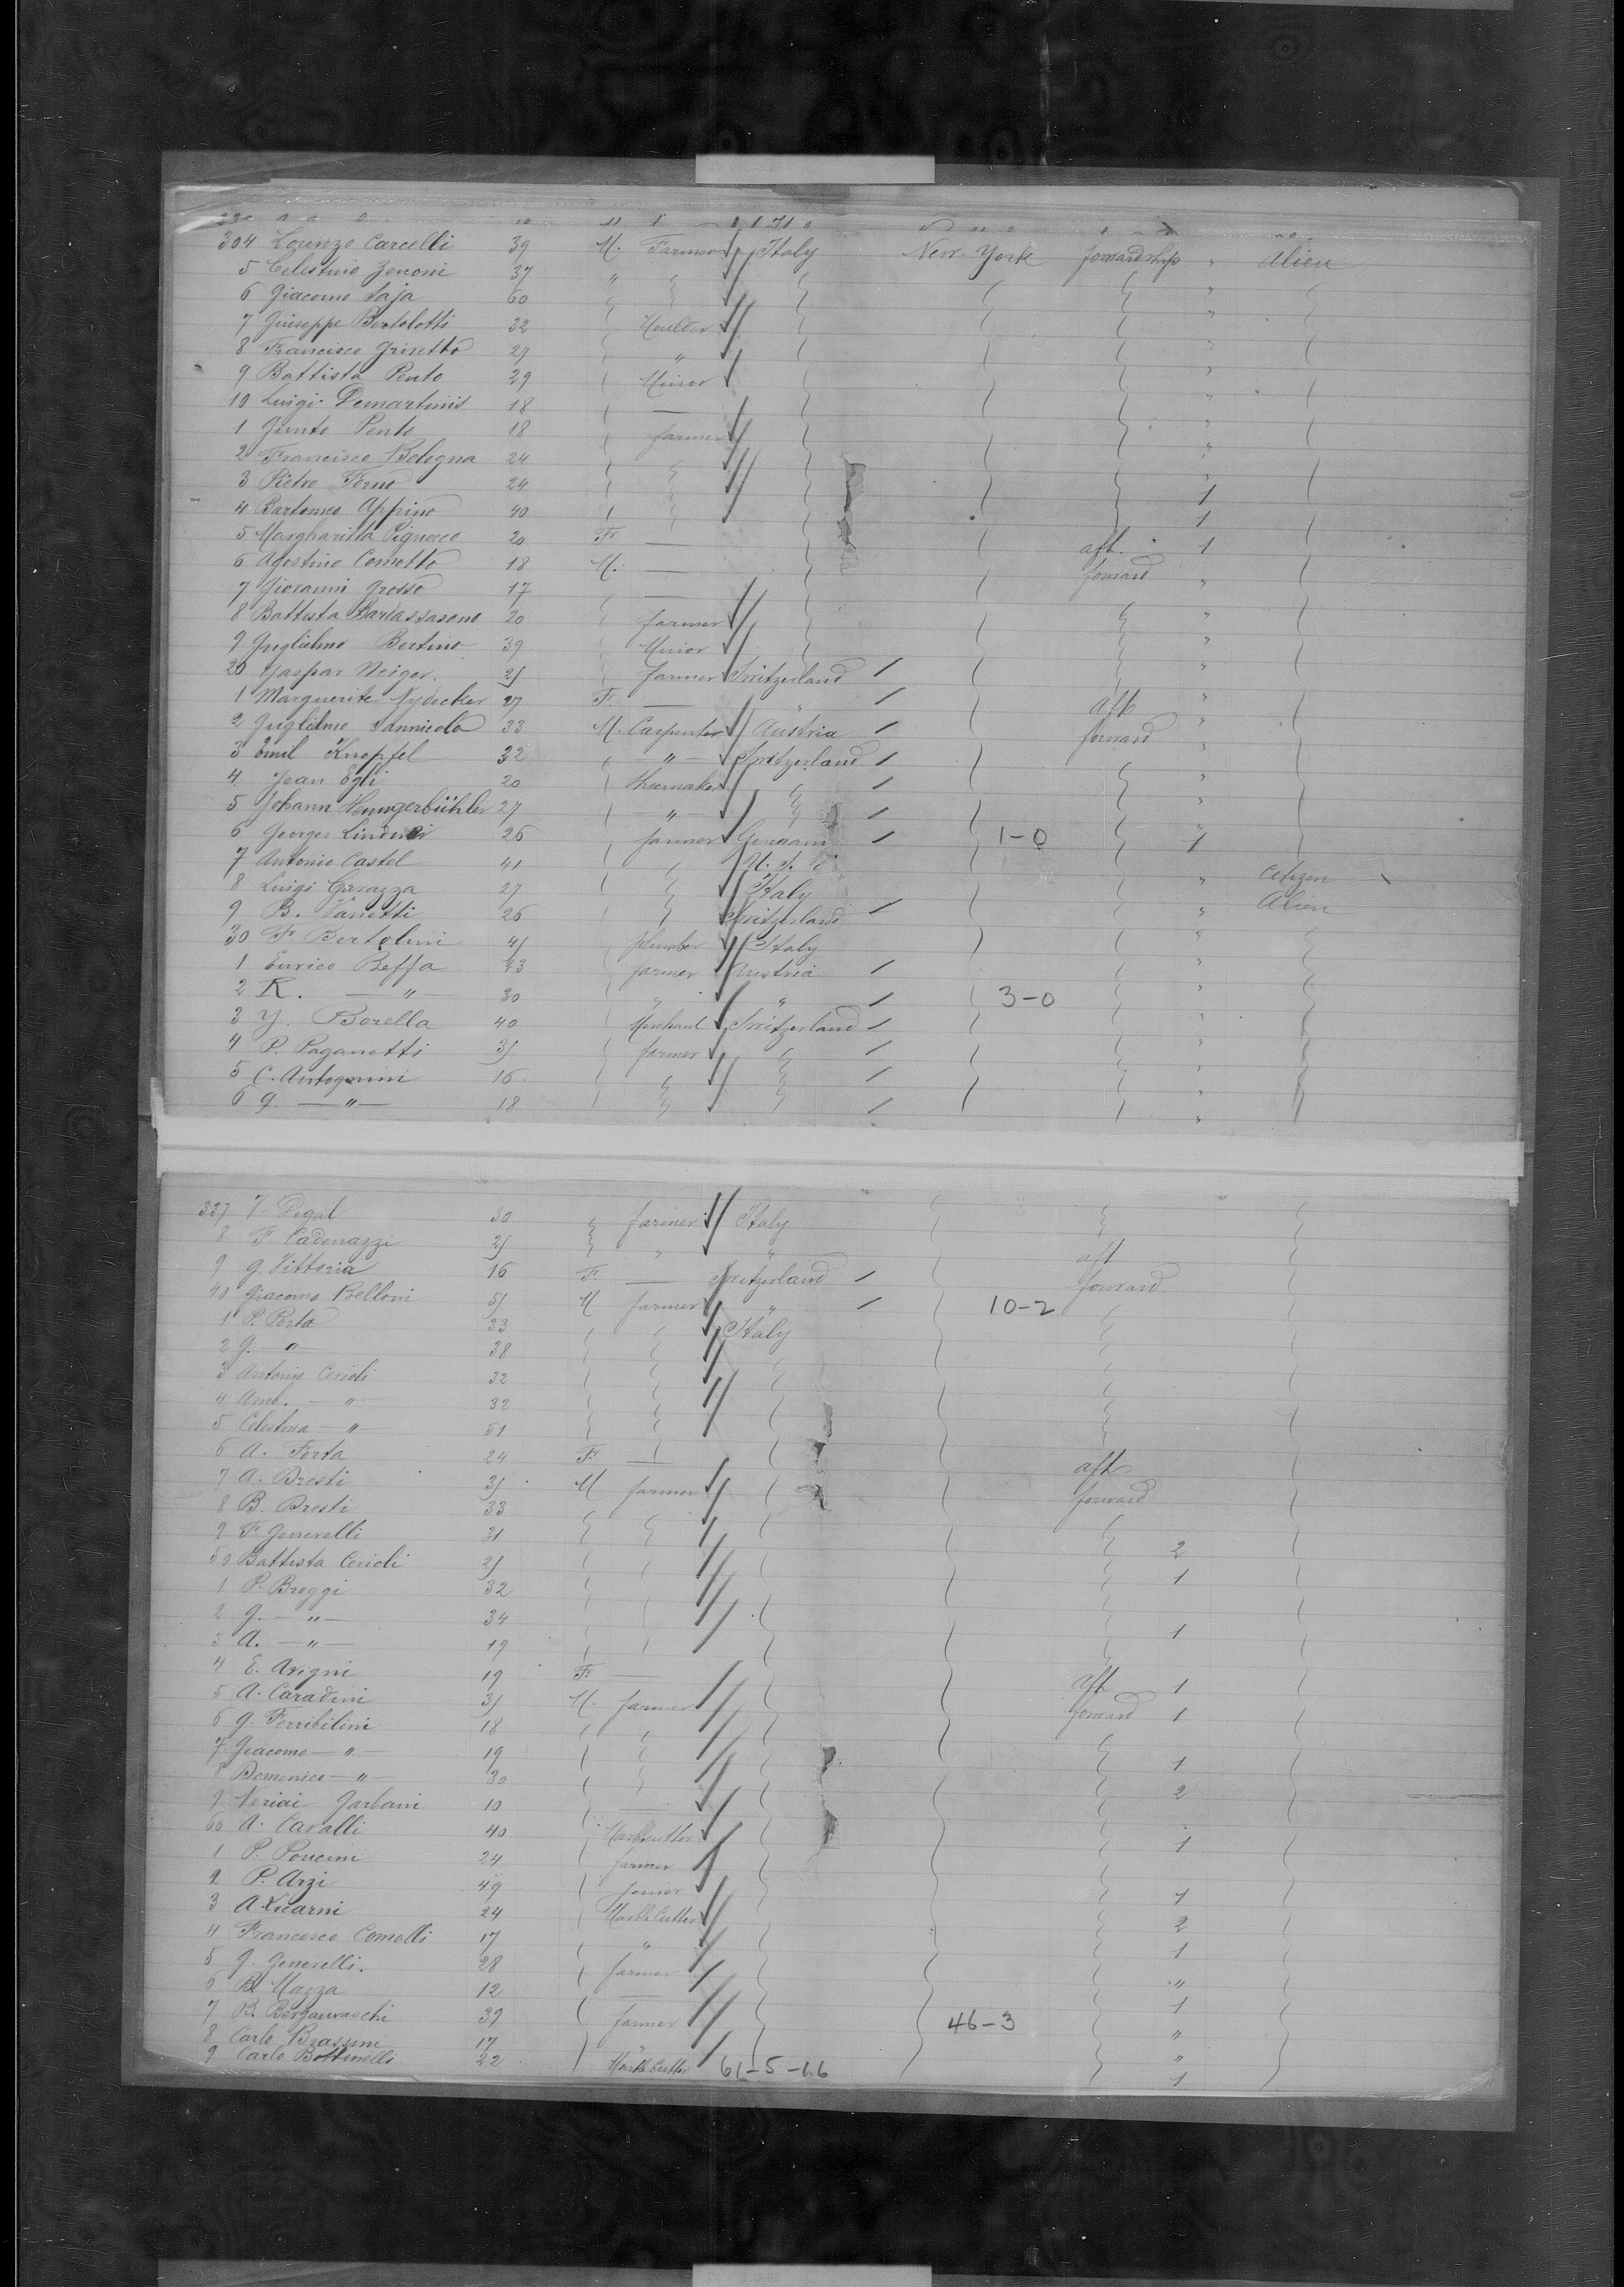 304 Lorenzo Carcelli 39 M. Farmer Italy New-York forwardship " Alien
5 Celestino Zenoni 37 " "
6 Giacomo Saja 60 "
7 Giuseppe Bertolotti 32 Moulder "
8 Francisco Grivetto 29 " "
9 Battista Pento 29 Minor "
10 Luigi Demartinis 18 — "
1 Pento 18 farmer "
2 Francisco Bologna 24 "
3 Pietro Ferno 24 1
4 Bartomeo Appino 40 1
5 Margharitta Pignocco 20 F. — aft. 1
6 Agostino Cometto 18 M. — forward "
7 Giovanni Grosso 17 — "
8 Battista 20 farmer "
9 Guglielmo Bertino 39 Minor "
20 Gaspar Neiger. 21 farmer Switzerland "
1 Marguerite Nydecker 27 F. — " aft "
2 Guglielmo Sannicola 33 M. Carpenter Austria forward "
3 Emil Knopfel 32 — " — Switzerland "
4 Jean Egli 20 Shoemaker "
5 Johann Hemgerbühler 27 — " — "
6 Georges 26 farmer German 1-0 1
7 Antonio Castel 41 U. S. " Citizen
8 Luigi Garazza 27 Italy " Alien
9 B. Vanetti 26 Switzerland "
30 F. Bertolini 41 plumber Italy "
1 Enrico Beffa 23 farmer Austria "
2 K. — " — 30 " " 3-0
3 Y. Borella 40 Merchant Switzerland "
4 P. Paganetti 31 farmer "
5 C. Antognini 16 "
6 G. — " — 18 "
337 V. Degal 30 farmer Italy
8 F. Cadenazzi 21 " " aft
9 G. Vittoria 16 F. — Switzerland forward
40 Giacomo Belloni 51 M farmer " 10-2
1 P. Porta 33 Italy
2 G. " 38
3 Antonio Cerioli 32
4 Amb. — " 32
5 Celestina — " 51
6 A. Porta 24 F. — aft
7 A. Bresti 31 M farmer forward
8 B. Bresti 33
9 F. Generelli 31 2
50 Battista Cerioli 21 1
1 P. Broggi 32
2 G. — " — 34 1
3 A. — " — 19
4 E. Arigni 19 F. — aft 1
5 A. Caradini 31 M. farmer forward 1
6 G. Ferribilini 18
7 Giacomo — " — 19 1
8 Domenico — " — 30 2
9 Garbani 10 —
60 A. Cavalli 40 Marbcutter 1
1 P. Poncini 24 farmer
2 P. Arzi 49 1
3 A. 24 Marble Cutter 2
4 Francesco Comolli 17 " 1
5 G. Generelli. 28 farmer "
6 B. Mazza 12 — 1
7 B. 39 farmer 46-3 "
8 Carlo 17 " "
9 Carlo Bottinelli 22 Marble Cutter 61-5-16 1